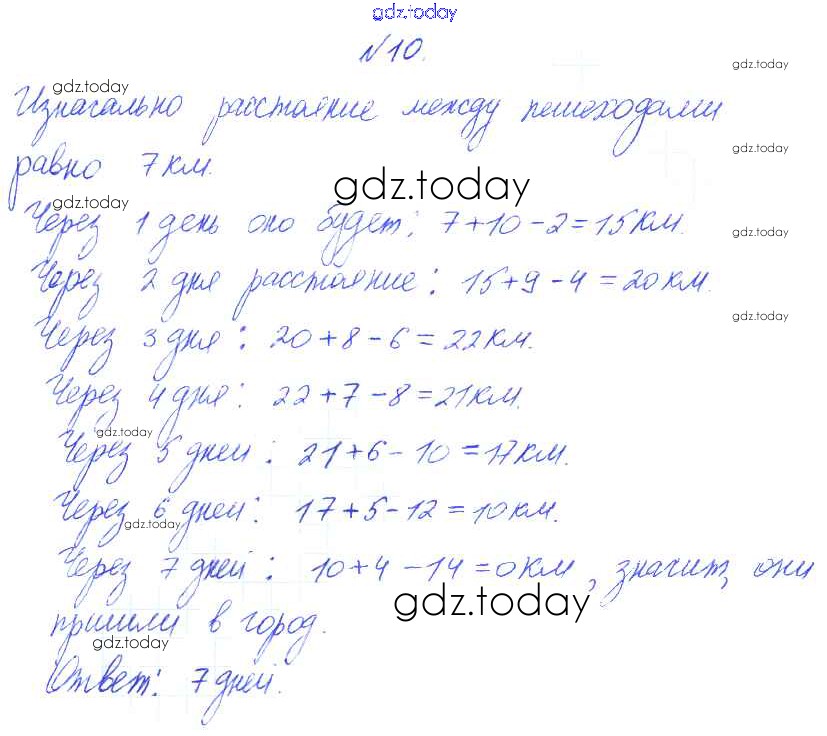 gdz.today
№10.
gdz.today
gdz.today
Изначально расстояние между пешеходами
gdz.today
равно 7 км.
gdz.today
gdz.today
Через 1 день оно будет: 7+10-2=15км.
gdz.today
Через 2 дня расстояние: 15+9-4=20км.
gdz.today
Через 3 дня: 20+8-6=22км.
Через 4 дня: 22+7-8=21км.
gdz.today
Через 5 дней: 21+6-10=17км.
Через 6 дней: 17+5-12=10км.
gdz.today
Через 7 дней: 10+4-14=0км, значит, они
gdz.today
пришли в город.
gdz.today
Ответ: 7 дней.